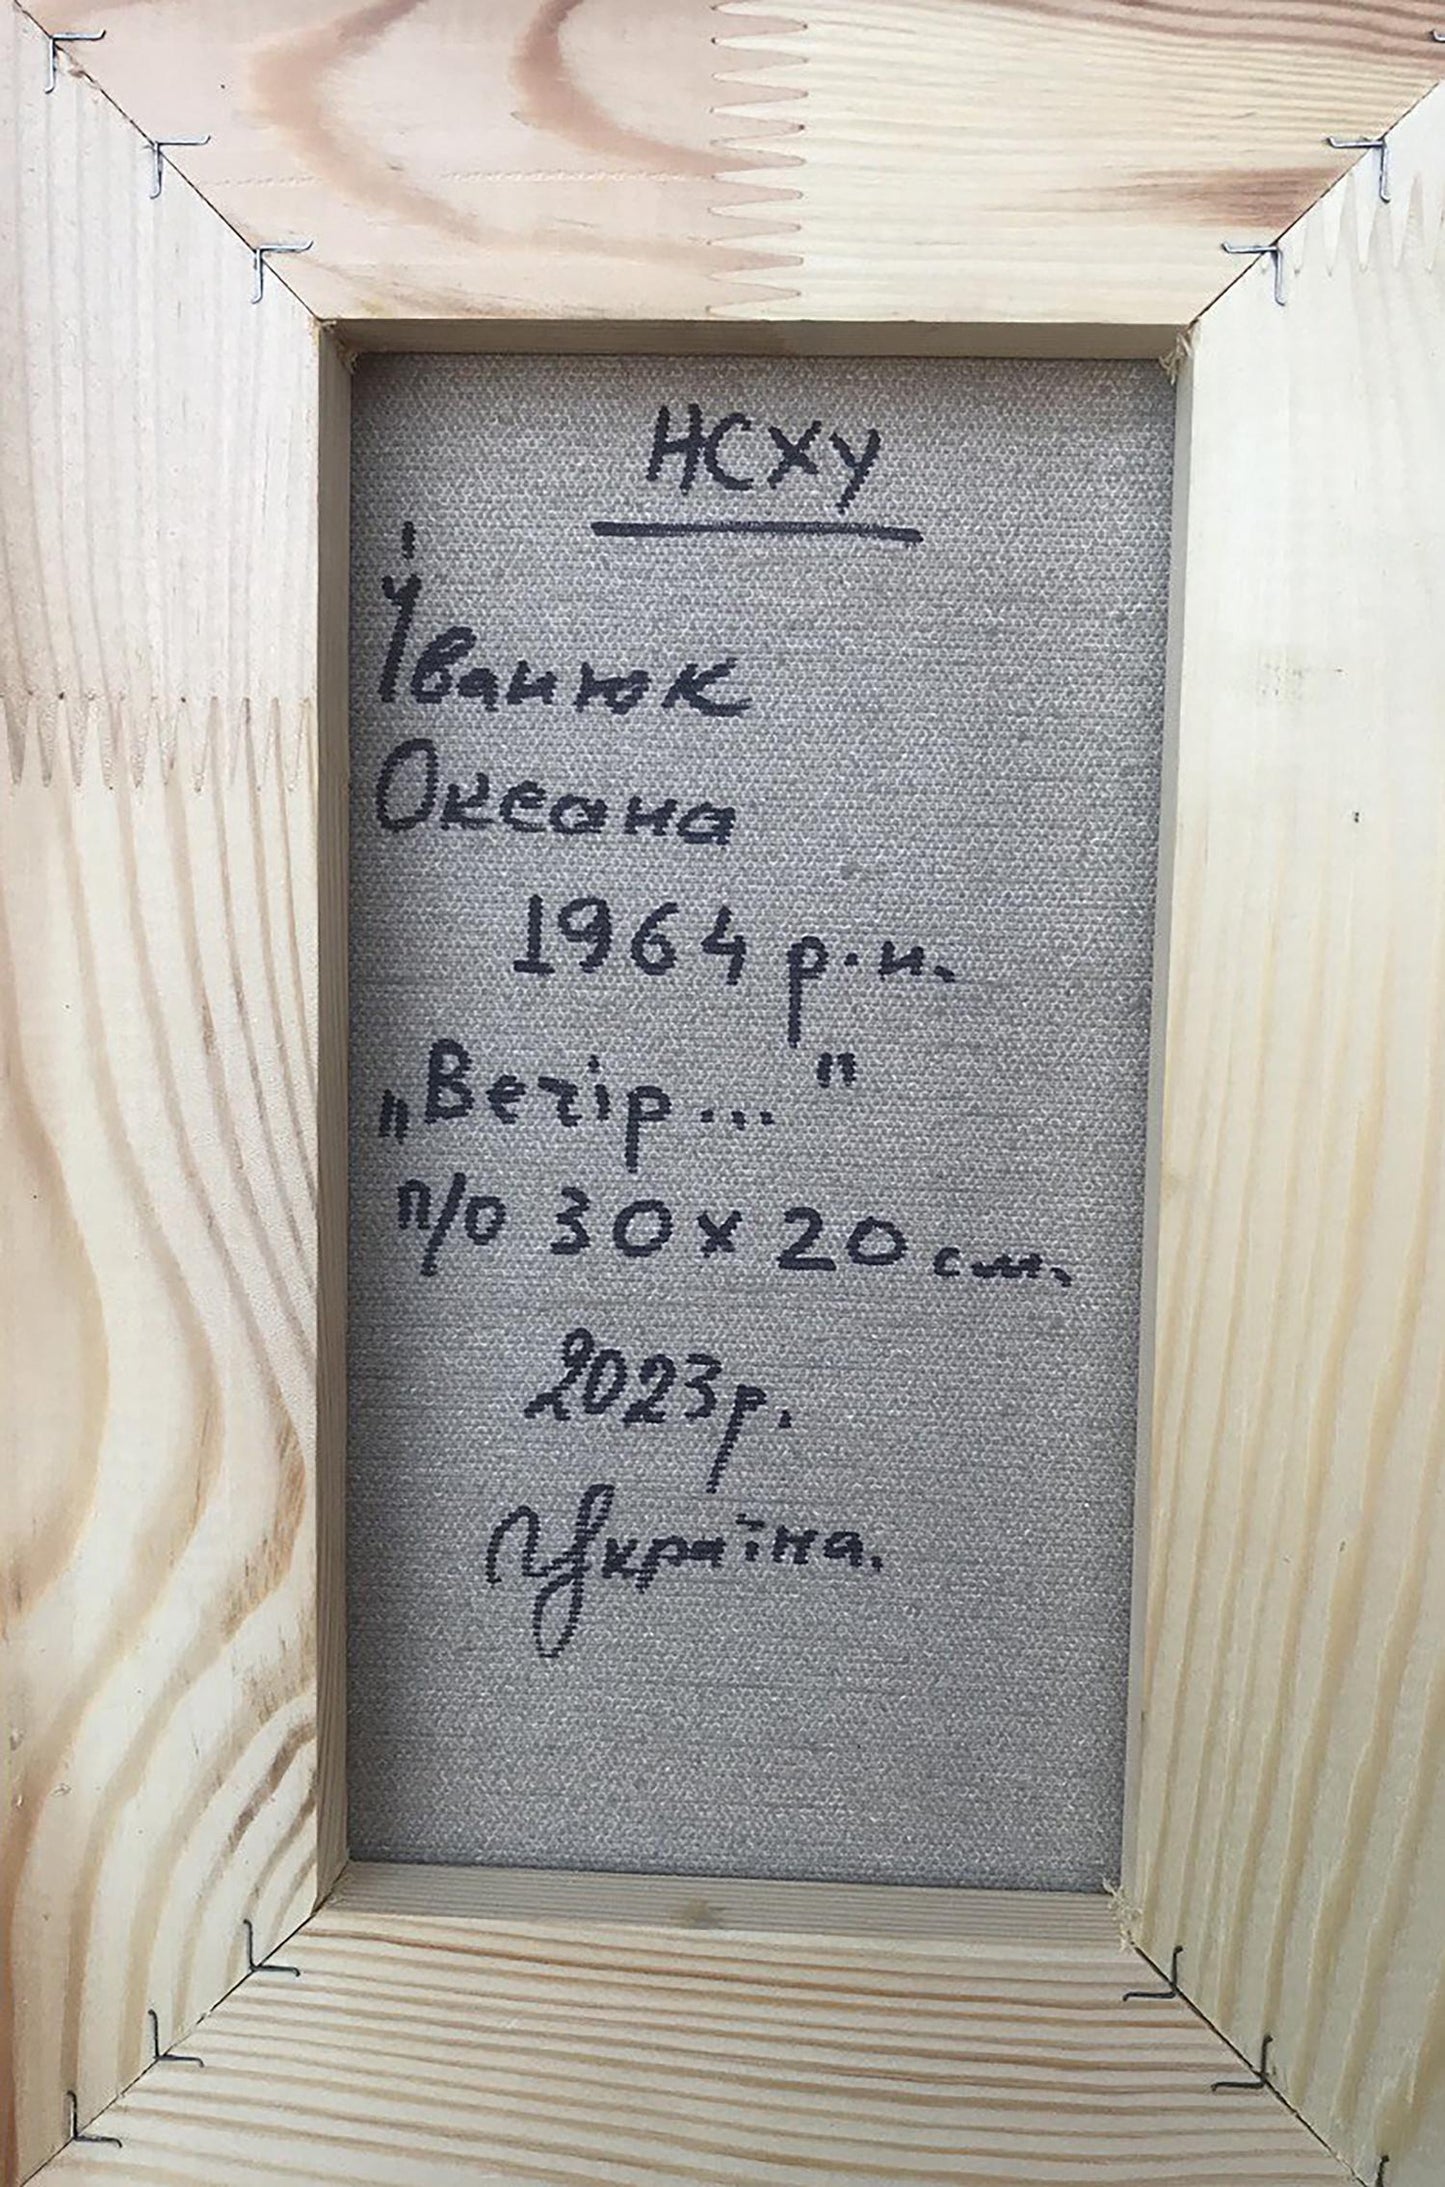 НСХУ
Іванюк
Оксана
1964 р.н.
„Вечір..."
п/о 30х20 см.
2023р.
Україна.